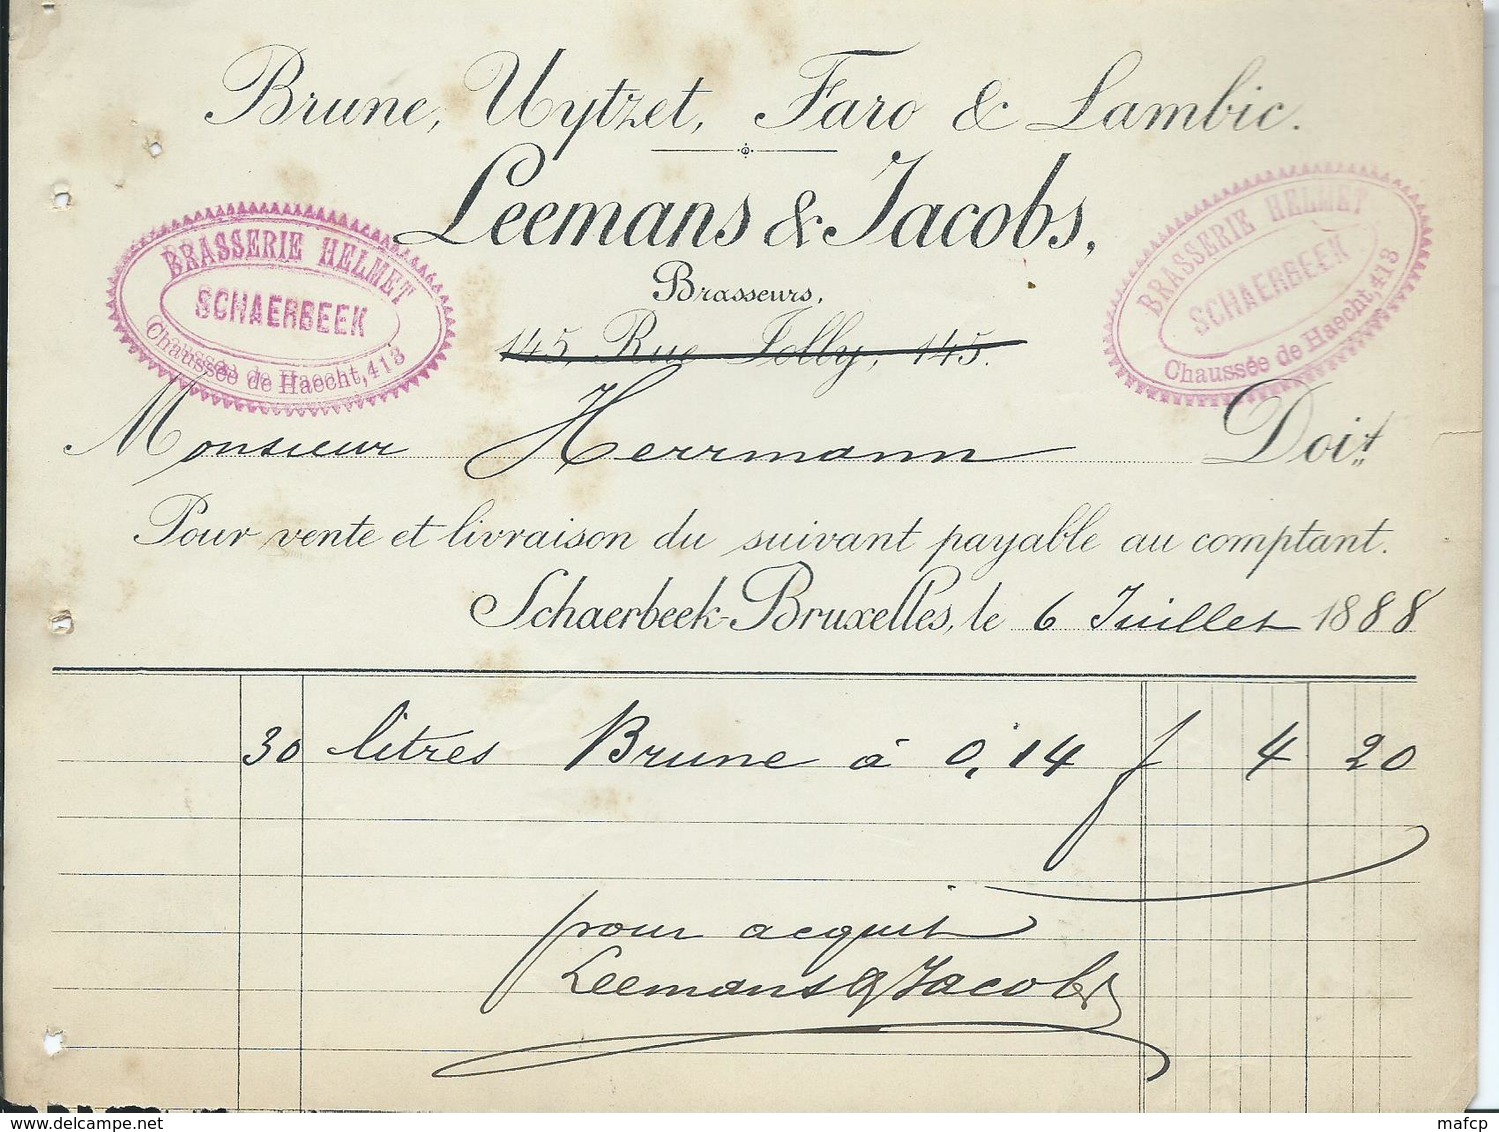 Brune, Uytzet, Faro & Lambic.
Leemans & Jacobs,
Brasseurs,
145, Rue Jolly, 145.
BRASSERIE HELMET
SCHAERBEEK
Chaussée de Haecht, 413
BRASSERIE HELMET
SCHAERBEEK
Chaussée de Haecht, 413
Monsieur Herrmann Doit
Pour vente et livraison du suivant payable au comptant.
Schaerbeek-Bruxelles, le 6 Juillet 1888
30 litres Brune à 0,14 f 4 20
pour acquit
Leemans & Jacobs
www.delcampe.net
mafcp